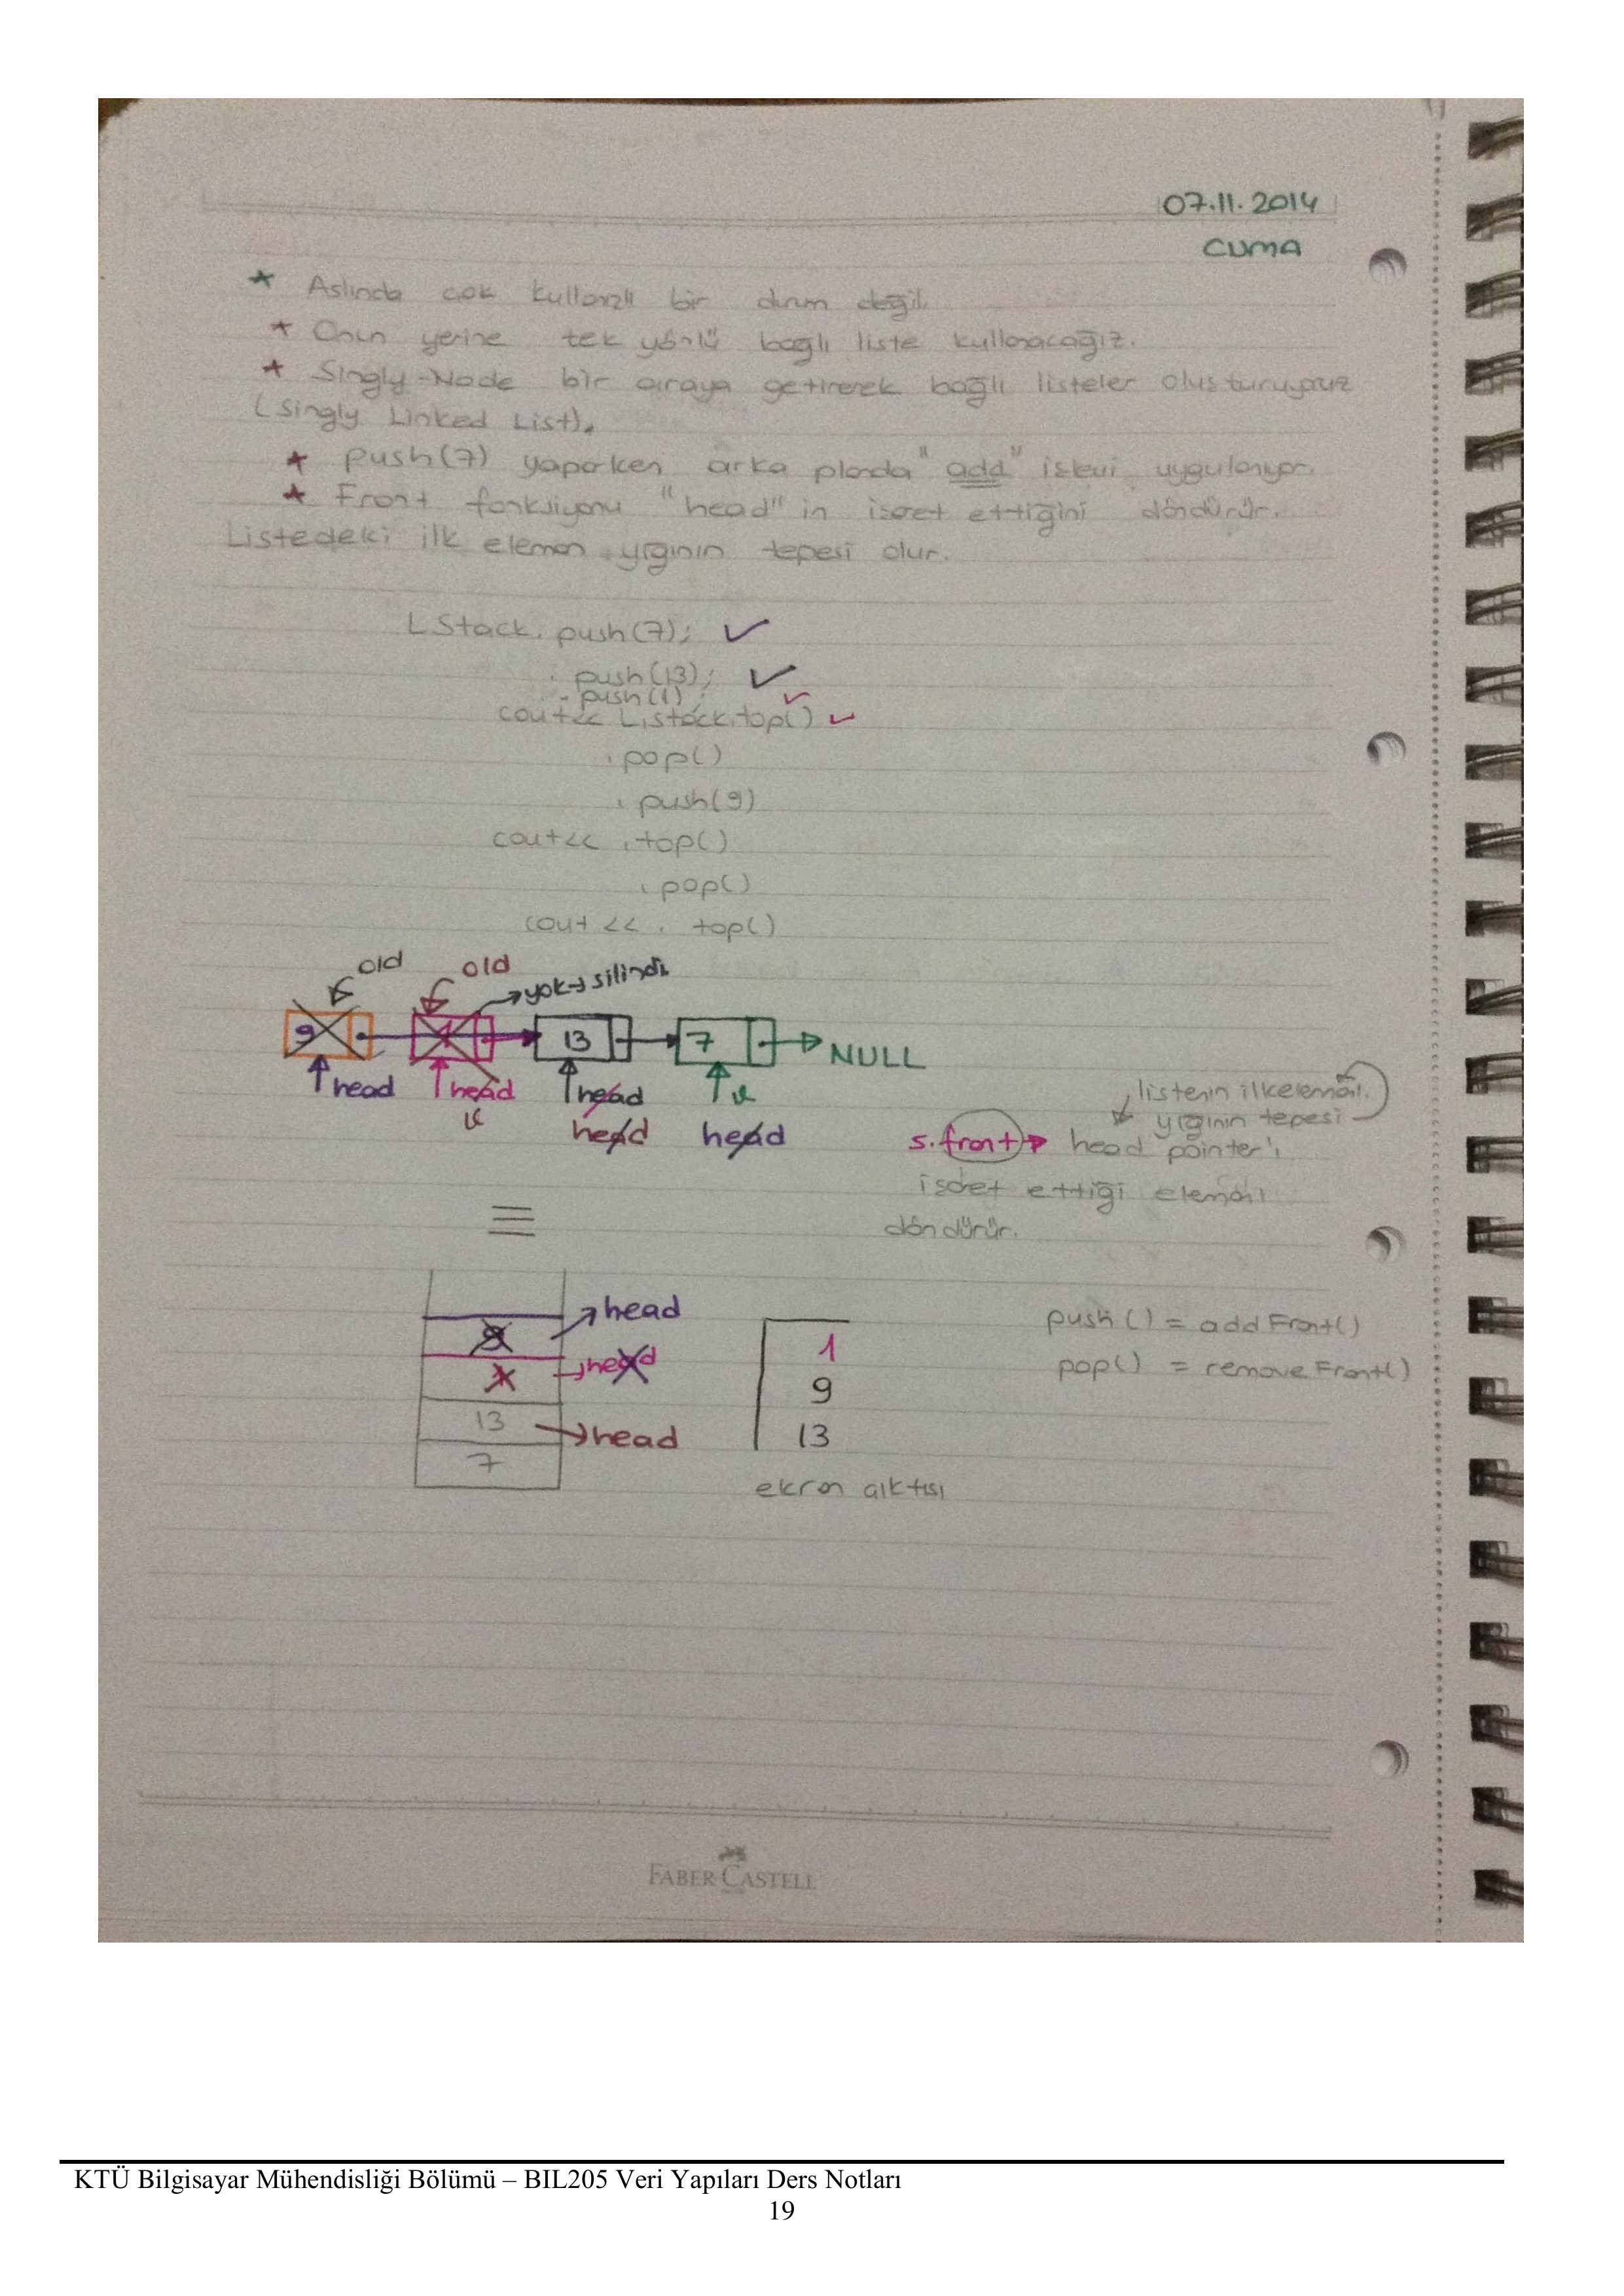 07.11.2014
CUMA
★ Aslında çok kullanışlı bir durum değil.
★ Onun yerine tek yönlü bağlı liste kullanacağız.
★ Singly-Node bir araya getirerek bağlı listeler oluşturuyoruz
(Singly Linked List).
★ Push(7) yaparken arka planda "add" işlevi uygulanıyor.
★ Front fonksiyonu "head" in işaret ettiğini döndürür.
Listedeki ilk eleman yığının tepesi olur.
LStack. push(7); ✓
. push(13); ✓
- push(1) ; ✓
cout<< Listack.top() ✓
.pop()
. push(9)
cout<< .top()
.pop()
cout << . top()
old old yok→silindi.
9 1 13 7 NULL
head head head v
v head head
listenin ilk elemanı.
yığının tepesi
s.front → head pointer'ı
işaret ettiği elemanı
döndürür.
≡
head
9 head
1
13 head
7
1
9
13
ekran çıktısı
push () = addFront()
pop() = removeFront()
FABER-CASTELL
KTÜ Bilgisayar Mühendisliği Bölümü – BIL205 Veri Yapıları Ders Notları
19